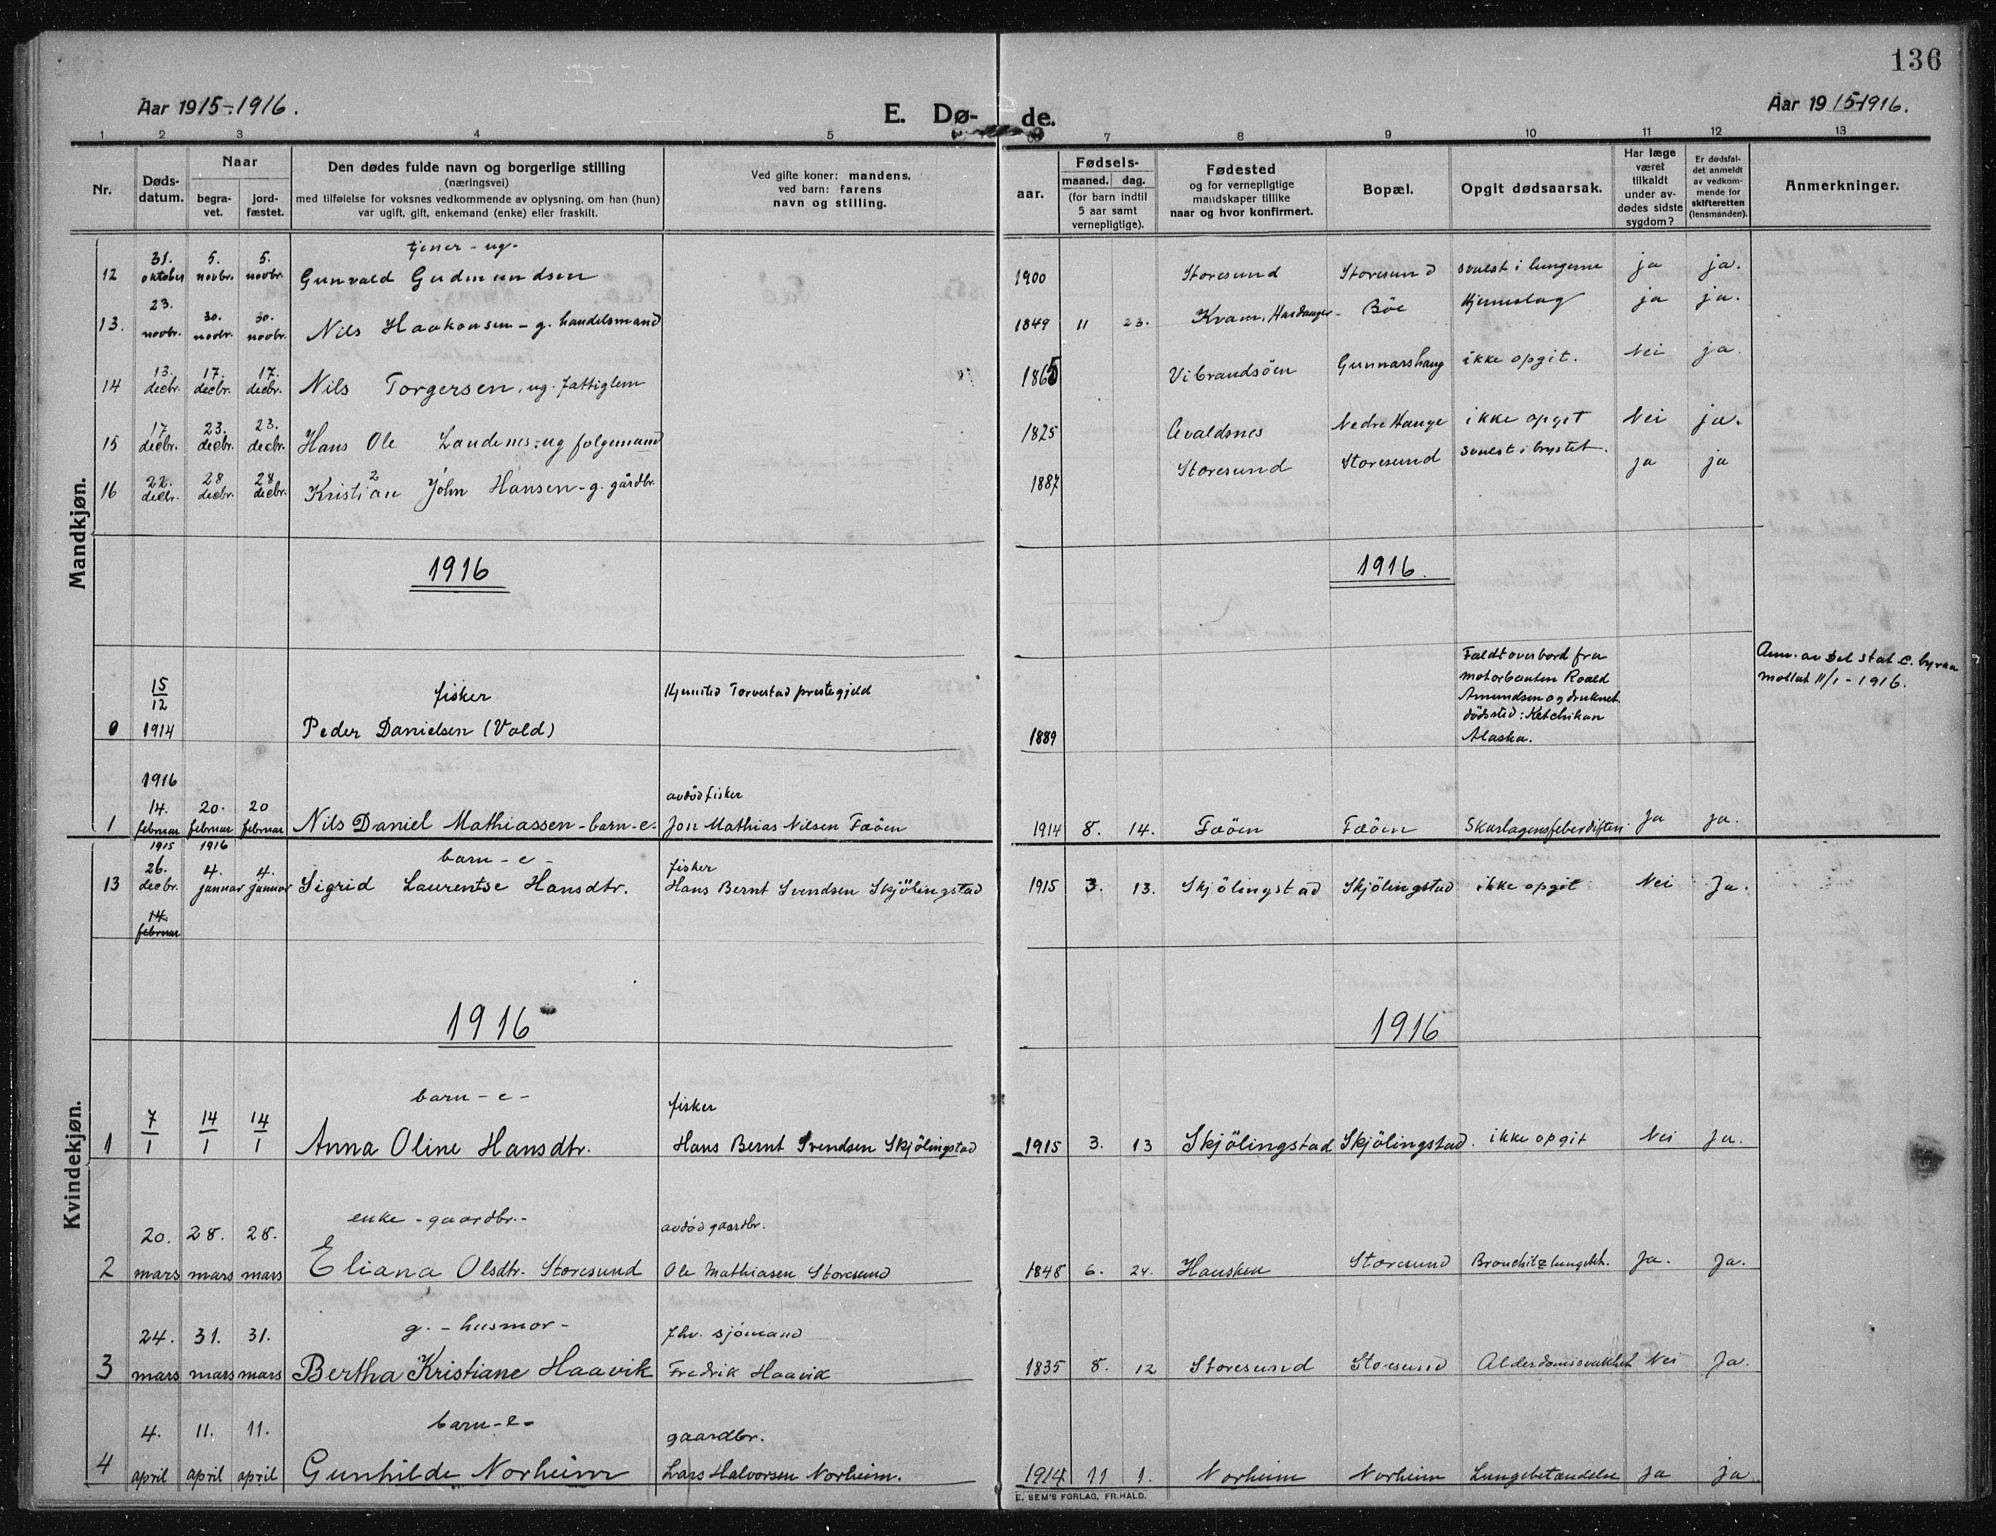 136
Aar 1915-1916.
E. Dø-
de.
Aar 1915-1916.
1 2 3 4 5 6 7 8 9 10 11 12 13
Nr.
Døds-
datum.
Naar
begra-
vet.
jord-
fæstet.
Den dødes fulde navn og borgerlige stilling
(næringsvei)
med tilføielse for voksnes vedkommende av oplysning, om han (hun)
var ugift, gift, enkemand (enke) eller fraskilt.
Ved gifte koner: mandens,
ved barn: farens
navn og stilling.
aar.
Fødsels-
maaned. dag.
(for barn indtil
5 aar samt
vernepligtige).
Fødested
og for vernepligtige
mandskaper tillike
naar og hvor konfirmert.
Bopæl.
Opgit dødsaarsak.
Har læge
været
tilkaldt
under av-
dødes sidste
sygdom?
Er dødsfal-
det anmeldt
av vedkom-
mende for
skifteretten
(lensmanden).
Anmerkninger.
Mandkjøn.
tjener - ug.
31. 5. 5.
12 oktober novbr. novbr. Gunvald Gudmundsen 1900 Storesund Storesund svulst i lungerne ja ja.
23. 30. 30.
13. novbr. novbr. novbr. Nils Haakonsen - g. handelsmand 1849 11 23. Kvam, Hardanger - Böe Hjerneslag ja ja.
13. 17. 17.
14 decbr. decbr. decbr. Nils Torgersen, ug. fattiglem 1865 Vibrandsöen Gunnarshaug ikke opgit. Nei ja.
17 23. 23.
15 decbr. decbr. decbr. Hans Ole ug folgemand 1825 Avaldsnes Nedre Hauge ikke opget Nei ja.
22. 28 28
2
16 decbr. decbr. decbr. Kristian John Hansen - g. gårdbr. 1887 Storesund Storesund svulst i brystet. ja ja
1916
1916.
15
12
0 1914
fisker
Peder Danielsen (Vold)
Hjemsted Torvestad prestegjeld
1889
Faldt overbord fra
motorbaaten Roald
Amundsen og druknet
dödssted: Ketchikan
Alaska.
Anm. av Det stat. c. byraa
mottat 11/1 - 1916.
1916
14. 20. 20 avdöd fisker
1 februar februar februar Nils Daniel Mathiassen - barn - e. Jon Mathias Nilsen Fæöen 1914 8. 14. Fæöen Fæöen Skarlagensfeber difteri Ja Ja.
Kvindekjøn.
1915 1916
26. 4. 4. barn - e - fisker
13 decbr. januar januar Sigrid Laurentse Hansdtr. Hans Bernt Svendsen Skjölingstad 1915 3. 13. Skjölingstad Skjölingstad ikke opgit Nei Ja.
14.
februar
1916
1916
barn - e - fisker
7/1 14/1 14/1
1 Anna Oline Hansdtr. Hans Bernt Svendsen Skjölingstad 1915 3. 13 Skjölingstad Skjölingstad. ikke opgit Nei Ja.
enke - gaardbr. - avdöd gaardbr.
20. 28. 28.
2 mars mars mars Eliana Olsdtr. Storesund Ole Mathiasen Storesund 1848 6. 24. Hausken Storesund Bronchit lungebt. Ja. Ja.
g. - husmor - fhv. sjömand
24. 31. 31.
3 mars mars mars Bertha Kristiane Haavik Fredrik Haavik 1835 8. 12 Storesund Storesund Alderdomssvakhet Nei Ja.
barn - e - gaardbr.
4. 11. 11.
4 april april april Gunhilde Norheim Lars Halvorsen Norheim. 1914 11 1. Norheim Norheim Lungebetændelse Ja ja
E. SEM'S FORLAG, FR.HALD.